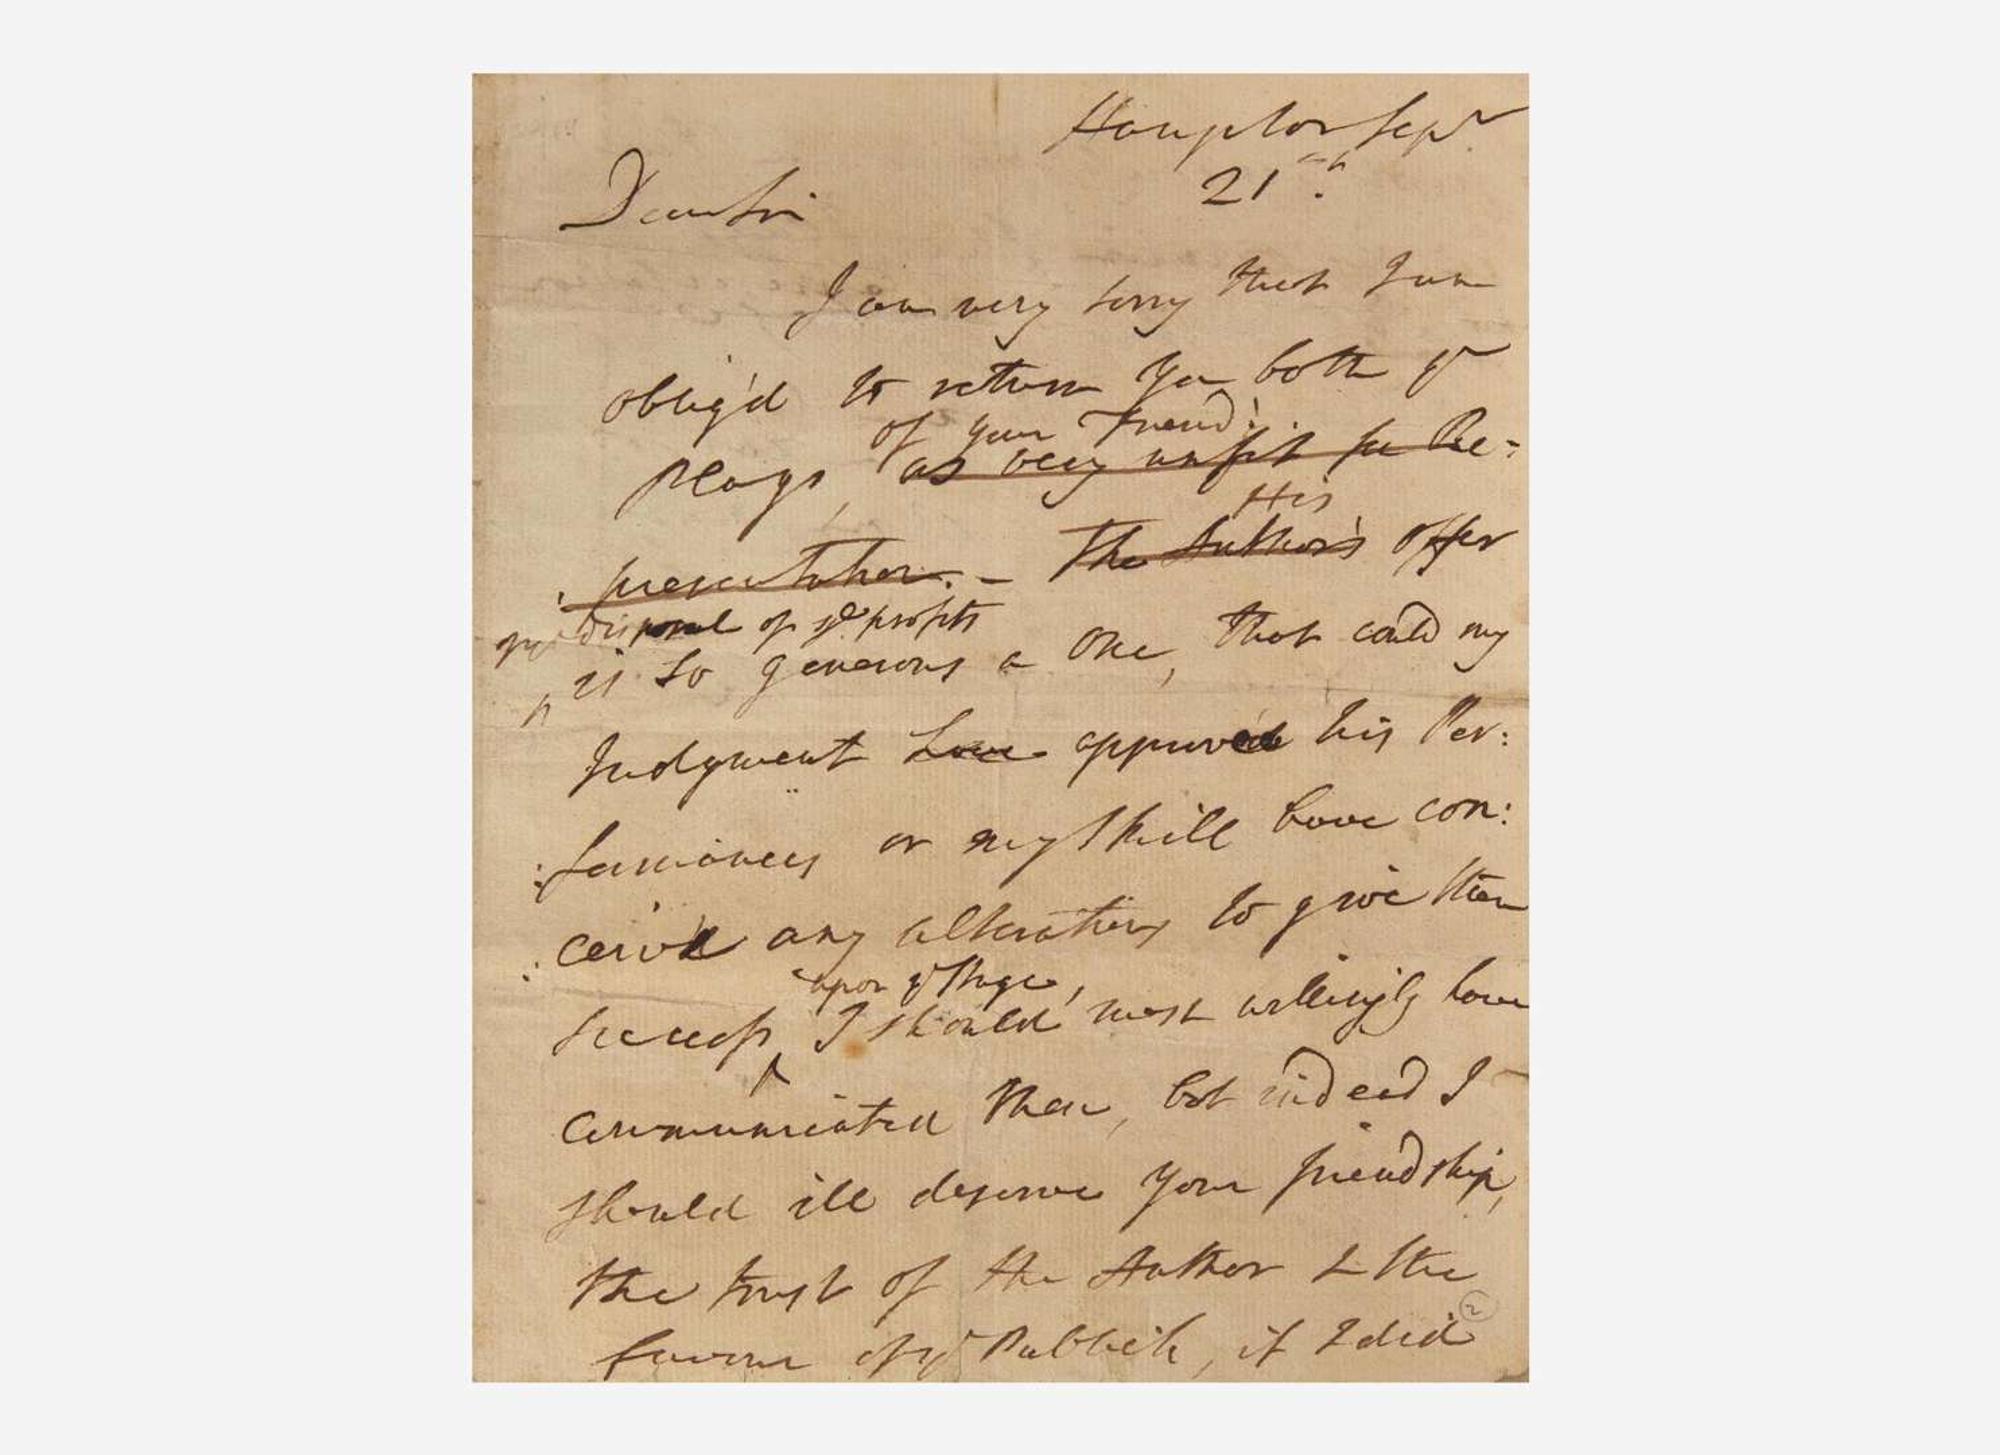 Hampton Sepr
21st.
Dear Sir
I am very sorry that I am
oblig'd to return You both ye
of your Friend:
Plays, as being unfit for Re-
His
presentation. - The Author's offer
disposal of ye profits
is so generous a One, that could my
Judgment have approv'd his Per:
:formances or my Skill have con:
:ceiv'd any alterations to give them
upon ye Stage,
success I should most willingly have
communicated them, but indeed I
should ill deserve Your friendship,
the trust of the Author & the
favour of ye Publick, if I did
2